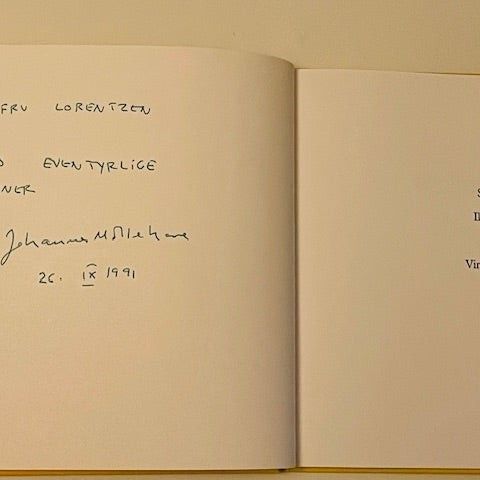 FRU LORENTZEN
EVENTYRLIGE
NER
Johannes Møllehave
26. IX 1991
S
Vin